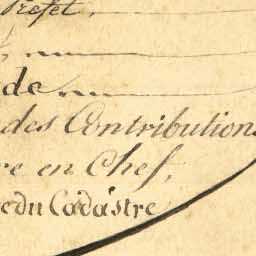 Préfet,
de
des Contributions
re en Chef,
e du Cadastre